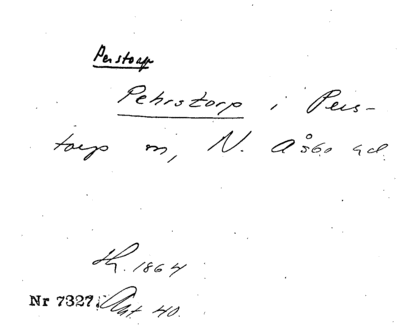 Perstorp
Pehrstorp i Pers-
torp m, N. Åsbo hd.
Hf. 1864
Nr 7327. Ant. 40.